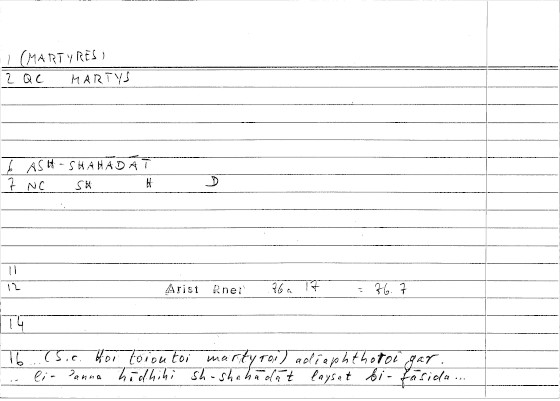 1 (MARTYRES)
2 QC MARTYS
6 ASH-SHAHĀDĀT
7 NC SH H D
11
12 Arist Rhet 76a 17 = 76.7
14
16 .. (S.c. hoi toioutoi martyroi) adiaphthoroi gar.
.. li-ʾanna hādhihi sh-shahādāt laysat bi-fāsida...